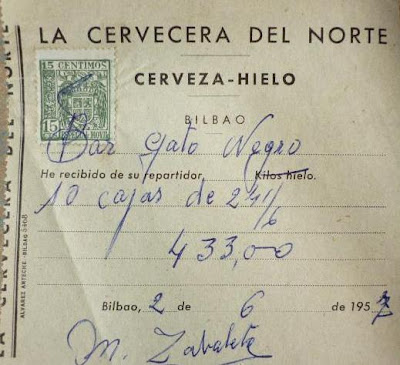 LA CERVECERA DEL NORTE
15 CENTIMOS
CERVEZA-HIELO
15
BILBAO
Bar Gato Negro
He recibido de su repartidor, Kilos hielo.
10 cajas de 24/6
433,00
Bilbao, 2 de 6 de 195
M. Zabalete
LA CERVECERA DEL NORTE
ALVAREZ ARTECHE-BILBAO